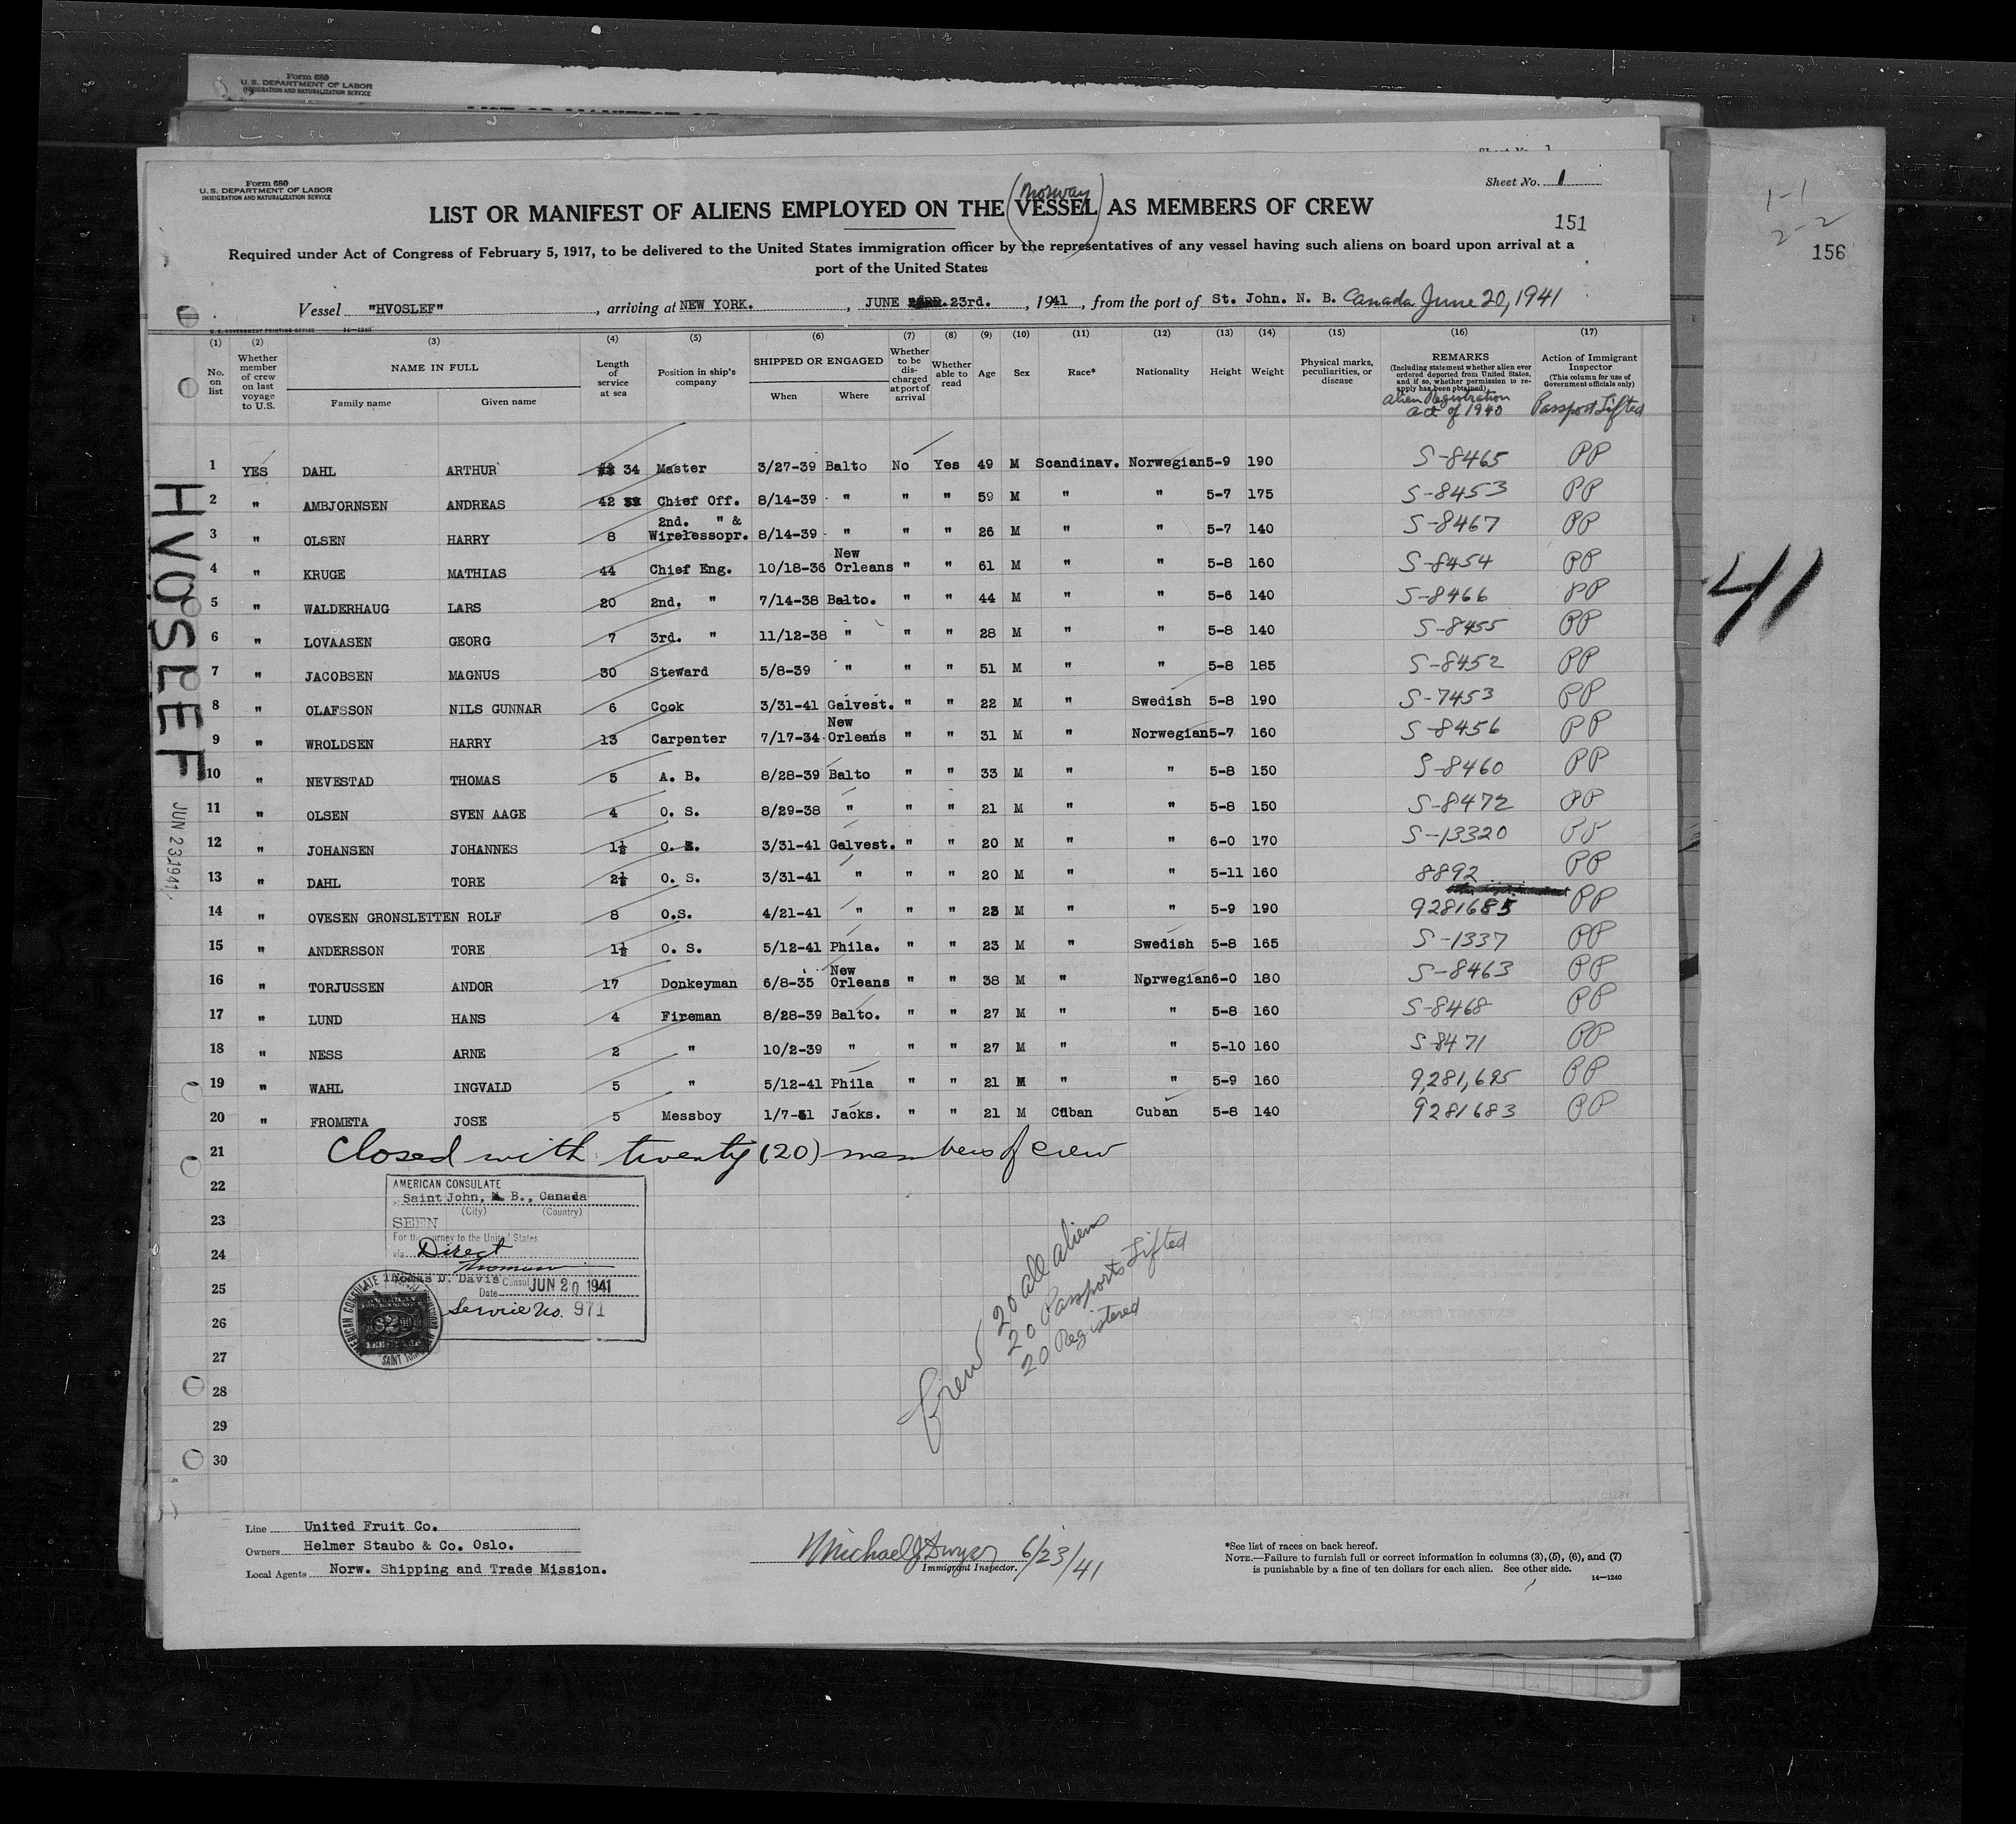 Form 680
U.S. DEPARTMENT OF LABOR
IMMIGRATION AND NATURALIZATION SERVICE
Form 680
U.S. DEPARTMENT OF LABOR
IMMIGRATION AND NATURALIZATION SERVICE
Sheet No. 1
(Norway)
LIST OR MANIFEST OF ALIENS EMPLOYED ON THE VESSEL AS MEMBERS OF CREW
151
1-1
2-2
156
Required under Act of Congress of February 5, 1917, to be delivered to the United States immigration officer by the representatives of any vessel having such aliens on board upon arrival at a
port of the United States
Vessel "HVOSLEF", arriving at NEW YORK., JUNE 23rd., 1941, from the port of St. John. N. B. Canada June 20, 1941
U.S. GOVERNMENT PRINTING OFFICE 14—1240
(1) (2) (3) (4) (5) (6) (7) (8) (9) (10) (11) (12) (13) (14) (15) (16) (17)
No. on list
Whether member of crew on last voyage to U.S.
NAME IN FULL
Family name
Given name
Length of service at sea
Position in ship's company
SHIPPED OR ENGAGED
When
Where
Whether to be discharged at port of arrival
Whether able to read
Age
Sex
Race*
Nationality
Height
Weight
Physical marks, peculiarities, or disease
REMARKS
(Including statement whether alien ever ordered deported from United States, and if so, whether permission to reapply has been obtained)
Alien Registration
act of 1940
Action of Immigrant Inspector
(This column for use of Government officials only)
Passport Lifted
1 YES DAHL ARTHUR 34 Master 3/27-39 Balto No Yes 49 M Scandinav. Norwegian 5-9 190 S-8465 PP
2 " AMBJORNSEN ANDREAS 42 Chief Off. 8/14-39 " " " 59 M " " 5-7 175 S-8453 PP
3 " OLSEN HARRY 8 2nd. " & Wirelessopr. 8/14-39 " " " 26 M " " 5-7 140 S-8467 PP
4 " KRUGE MATHIAS 44 Chief Eng. 10/18-36 New Orleans " " 61 M " " 5-8 160 S-8454 PP
5 " WALDERHAUG LARS 20 2nd. " 7/14-38 Balto. " " 44 M " " 5-6 140 S-8466 PP
6 " LOVAASEN GEORG 7 3rd. " 11/12-38 " " " 28 M " " 5-8 140 S-8455 PP
7 " JACOBSEN MAGNUS 30 Steward 5/8-39 " " " 51 M " " 5-8 185 S-8452 PP
8 " OLAFSSON NILS GUNNAR 6 Cook 3/31-41 Galvest. " " 22 M " Swedish 5-8 190 S-7453 PP
9 " WROLDSEN HARRY 13 Carpenter 7/17-34 New Orleans " " 31 M " Norwegian 5-7 160 S-8456 PP
10 " NEVESTAD THOMAS 5 A. B. 8/28-39 Balto " " 33 M " " 5-8 150 S-8460 PP
11 " OLSEN SVEN AAGE 4 O. S. 8/29-38 " " " 21 M " " 5-8 150 S-8472 PP
12 " JOHANSEN JOHANNES 1½ O. S. 3/31-41 Galvest. " " 20 M " " 6-0 170 S-13320 PP
13 " DAHL TORE 2½ O. S. 3/31-41 " " " 20 M " " 5-11 160 8892 PP
14 " OVESEN GRONSLETTEN ROLF 8 O.S. 4/21-41 " " " 23 M " " 5-9 190 9281685 PP
15 " ANDERSSON TORE 1½ O. S. 5/12-41 Phila. " " 23 M " Swedish 5-8 165 S-1337 PP
16 " TORJUSSEN ANDOR 17 Donkeyman 6/8-35 New Orleans " " 38 M " Norwegian 6-0 180 S-8463 PP
17 " LUND HANS 4 Fireman 8/28-39 Balto. " " 27 M " " 5-8 160 S-8468 PP
18 " NESS ARNE 2 " 10/2-39 " " " 27 M " " 5-10 160 S-8471 PP
19 " WAHL INGVALD 5 " 5/12-41 Phila " " 21 M " " 5-9 160 9,281,695 PP
20 " FROMETA JOSE 5 Messboy 1/7-41 Jacks. " " 21 M Cuban Cuban 5-8 140 9281683 PP
21 Closed with twenty (20) members of crew
22
23
24
25
26
27
28
29
30
HVOSLEF
JUN 23 1941
41
AMERICAN CONSULATE
Saint John, N. B., Canada
(City) (Country)
SEEN
For the journey to the United States
via Direct
Thomas D. Davis Consul
Date JUN 20 1941
Service No. 971
Crew 20 all aliens
20 Passports Lifted
20 Registered
Line United Fruit Co.
Owners Helmer Staubo & Co. Oslo.
Local Agents Norw. Shipping and Trade Mission.
Michael J Dwyer 6/23/41
Immigrant Inspector.
*See list of races on back hereof.
NOTE.—Failure to furnish full or correct information in columns (3), (5), (6), and (7)
is punishable by a fine of ten dollars for each alien. See other side.
14—1240